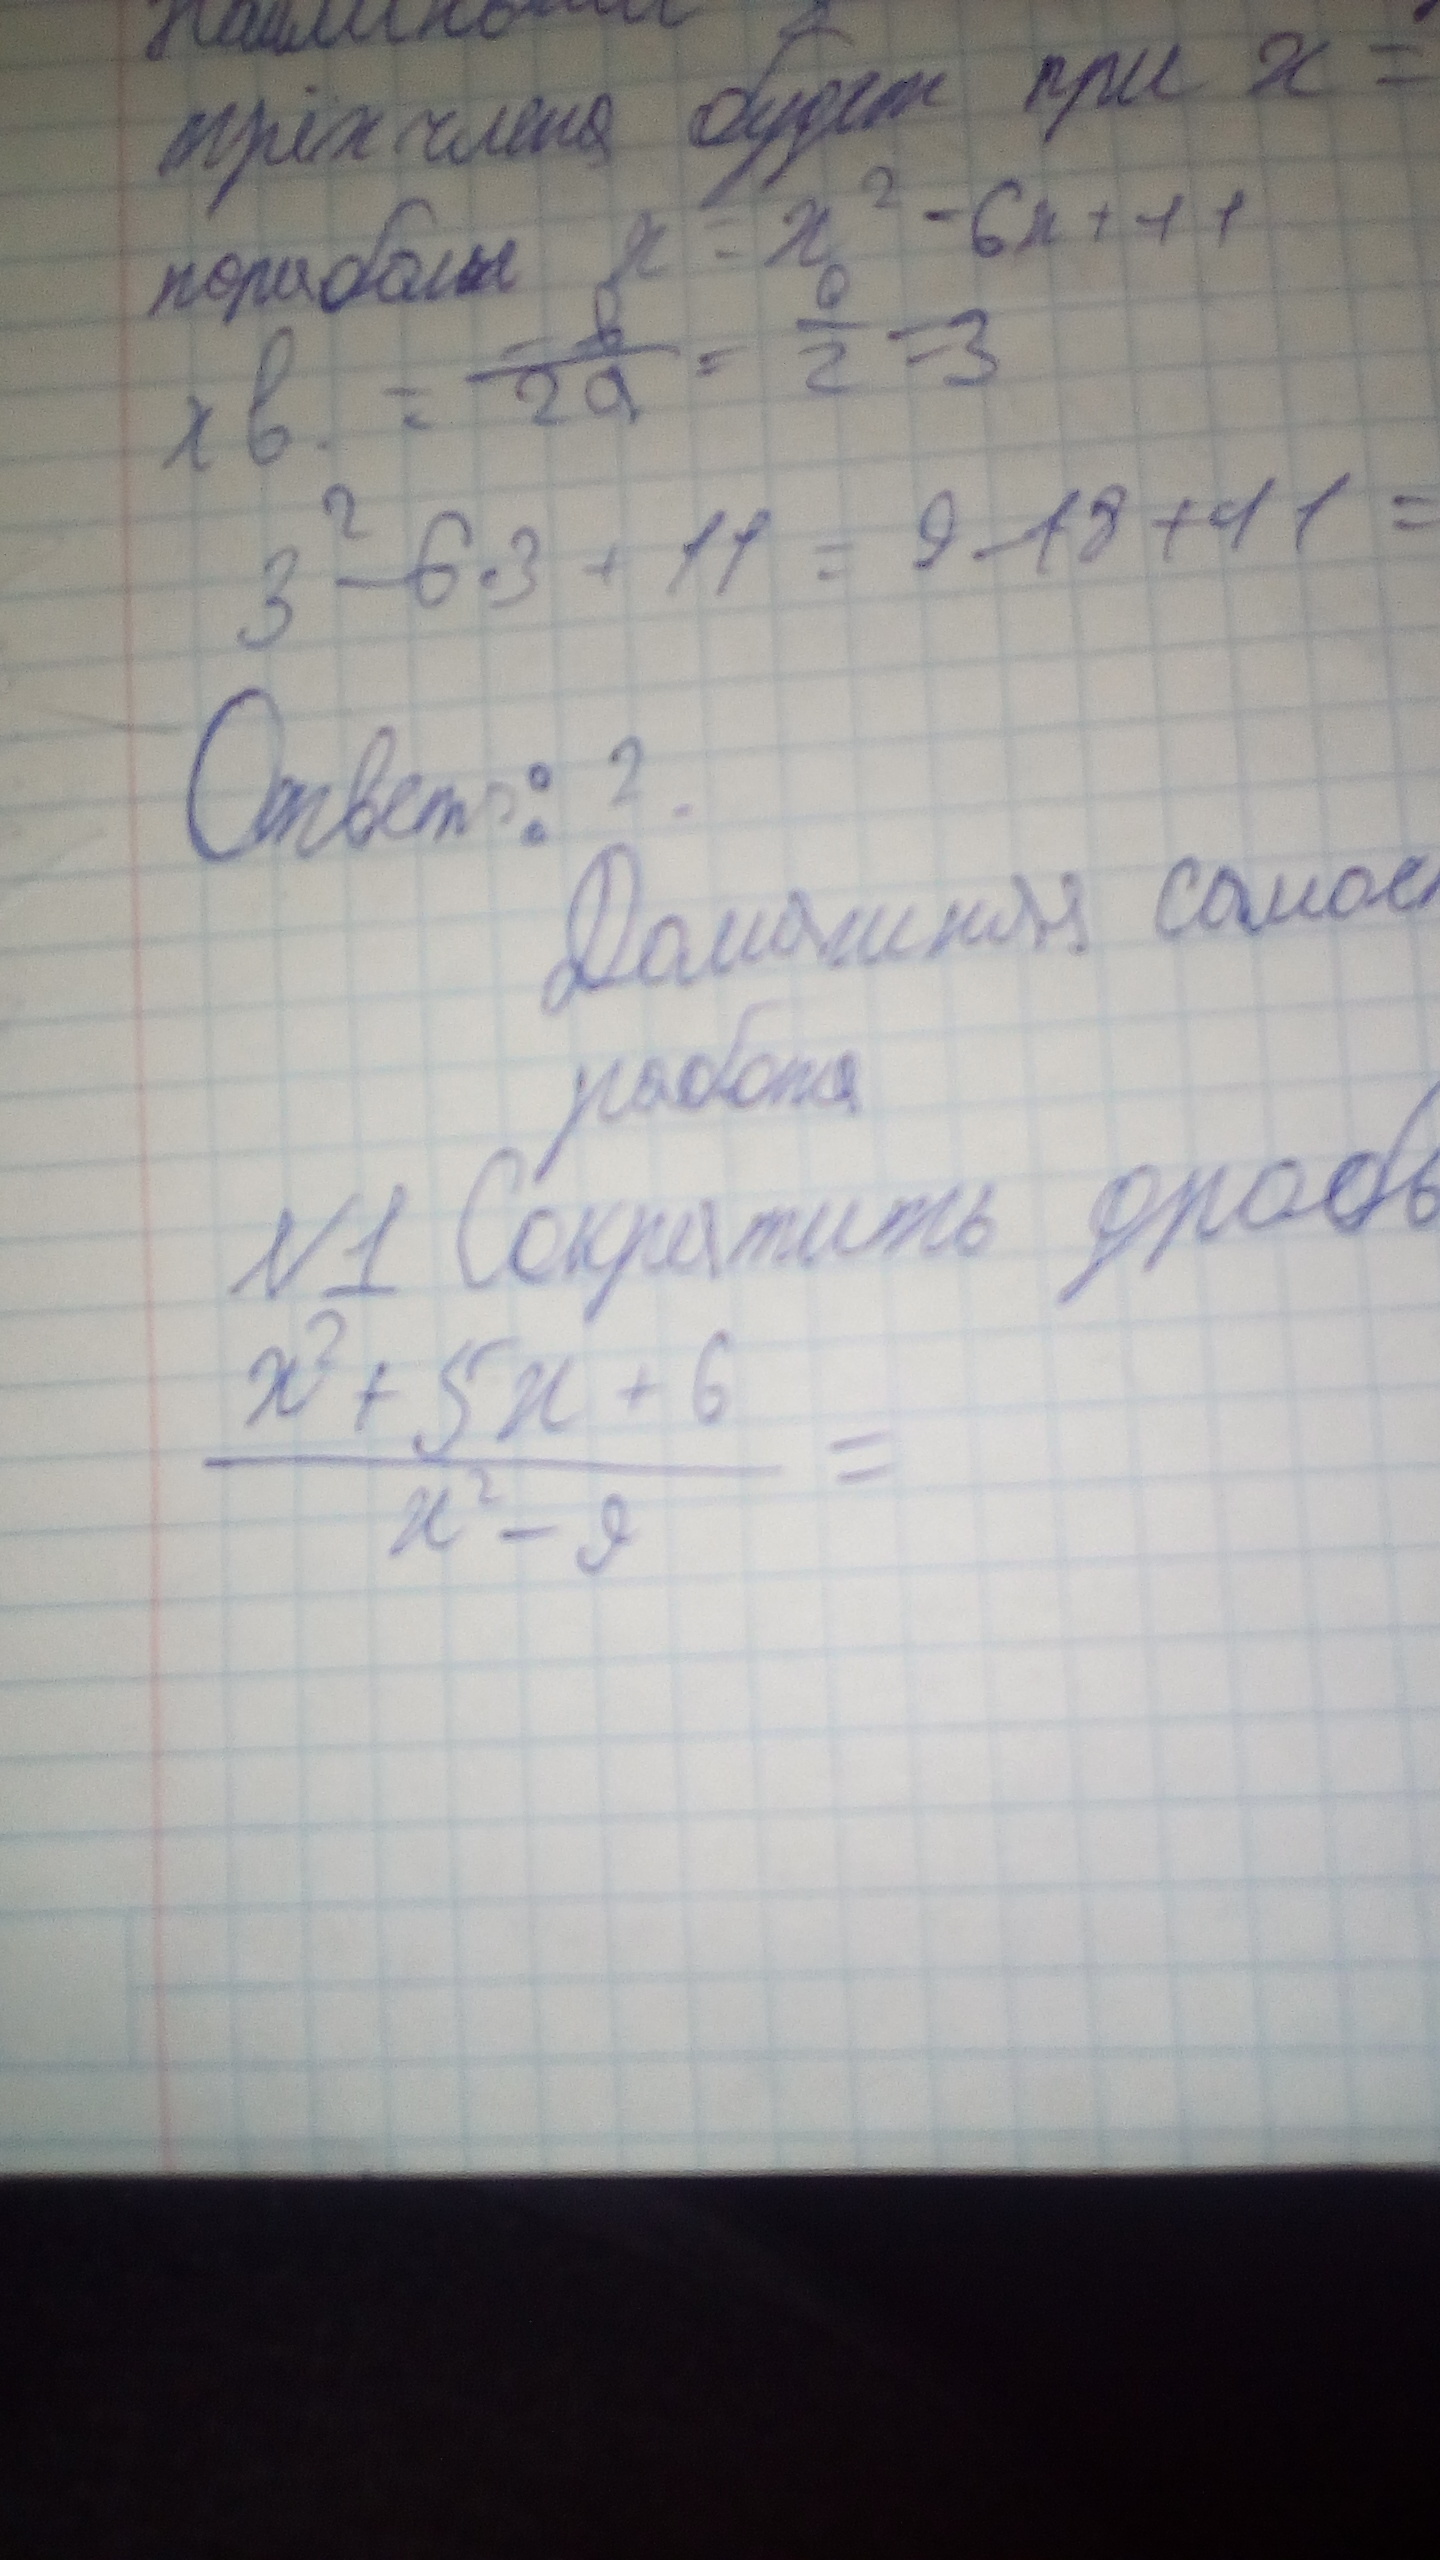 трёхчлена будет при x =
параболы x = x² - 6x + 11
xв. = -в/2a = 6/2 = 3
3² - 6·3 + 11 = 9 - 18 + 11 =
Ответ: 2.
Домашняя самост
работа
№1 Сократить дробь
x² + 5x + 6
x² - 9 =